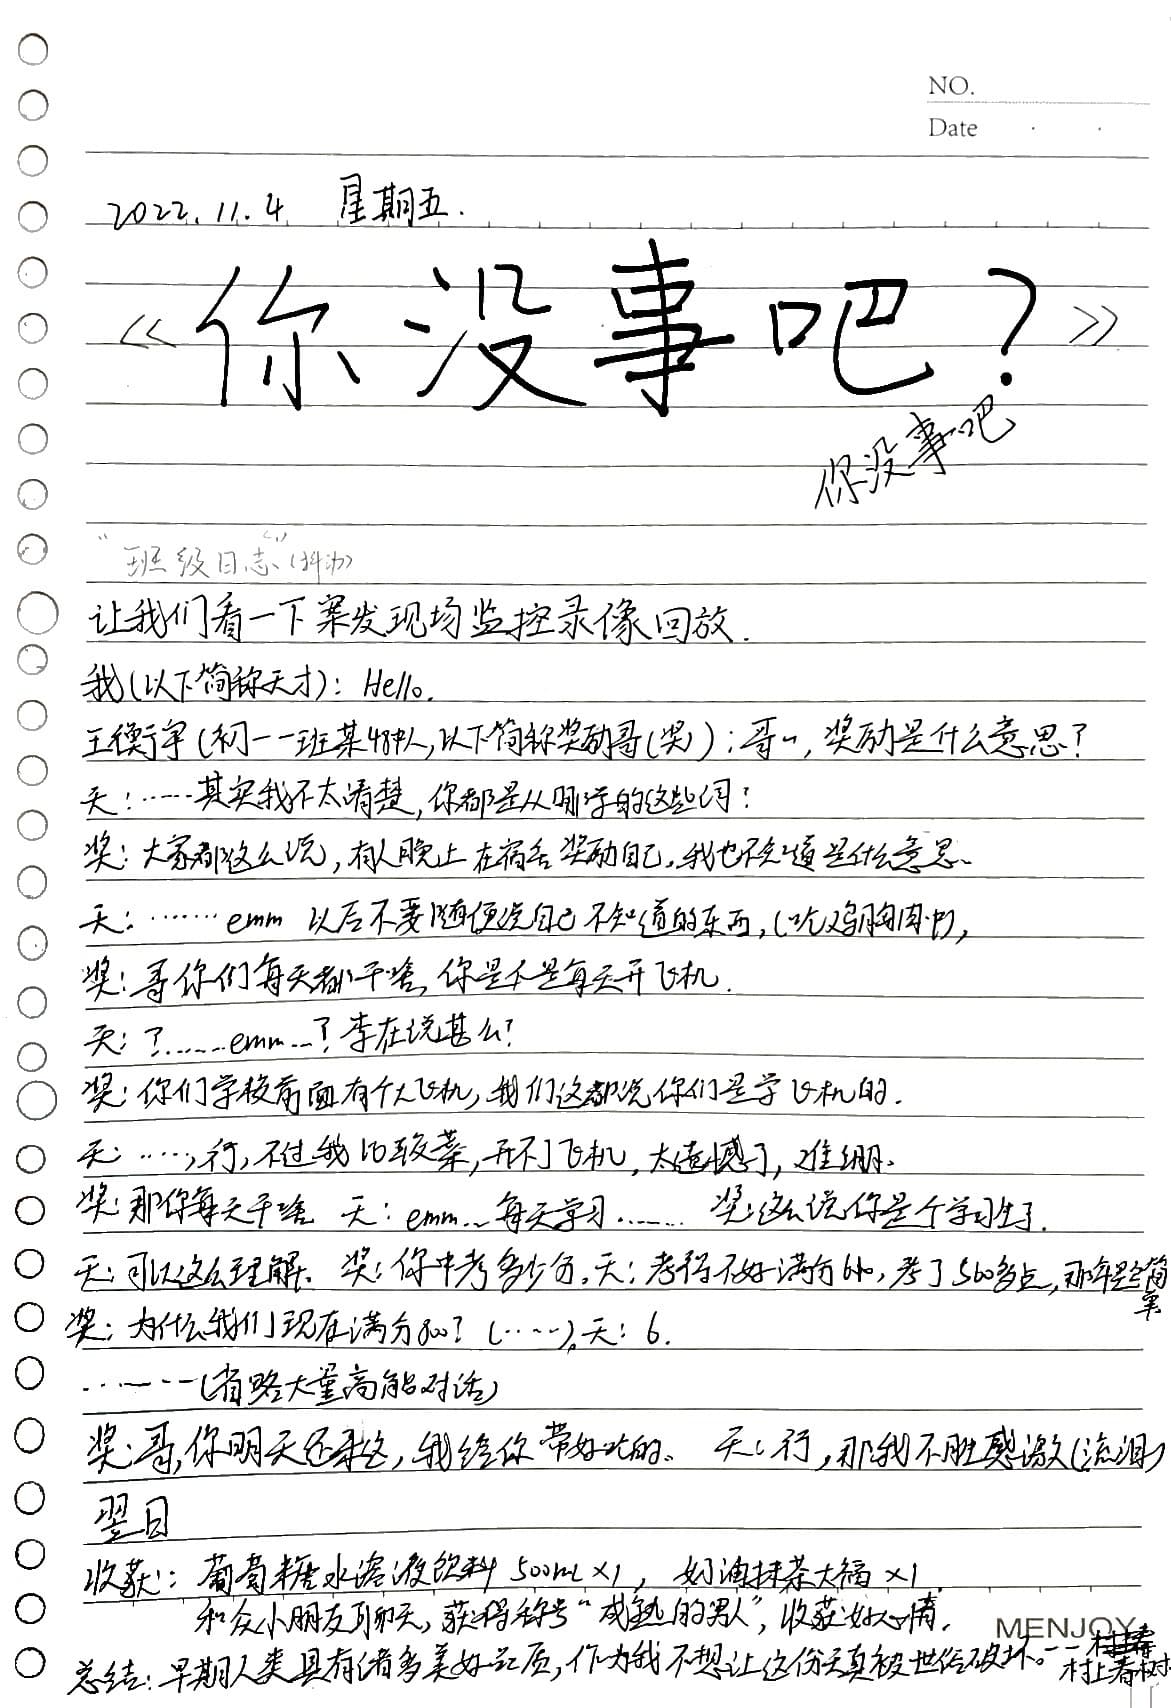 NO.
Date
2022.11.4 星期五.
《你没事吧?》
你没事吧
"班级日志"(抖动)
让我们看一下案发现场监控录像回放.
我(以下简称天才): Hello.
王衡宇(初一一班某484人,以下简称奖励哥(奖)): 哥~,奖励是什么意思?
天:……其实我不太清楚,你都是从哪学的这些词?
奖: 大家都这么说,有人晚上在宿舍奖励自己。我也不知道是什么意思。
天: ……… emm 以后不要随便说自己不知道的东西,(吃鸡胸肉中),
奖: 哥你们每天都干啥,你是不是每天开飞机.
天: ?……emm…? 李在说甚么?
奖: 你们学校前面有个大飞机,我们这都说你们是学飞机的.
天: ……,行,不过我比较菜,开不了飞机,太遗憾了,难绷.
奖: 那你每天干啥 天: emm…每天学习…… 奖: 这么说你是个学习生了.
天: 可以这么理解. 奖: 你中考多少分。天: 考得不好满分640,考了560多点,那年是简单
奖: 为什么我们现在满分800? (……)。天: 6.
………(省略大量高能对话)
奖: 哥,你明天还来这,我给你带好吃的。 天: 行,那我不胜感激(流泪)
翌日
收获: 葡萄糖水溶液饮料 500mL×1, 奶油抹茶大福×1.
和众小朋友聊天,获得称号"成熟的男人",收获好心情.
MENJOY
总结: 早期人类具有诸多美好品质,作为我不想让这份天真被世俗破坏。--
村上春树